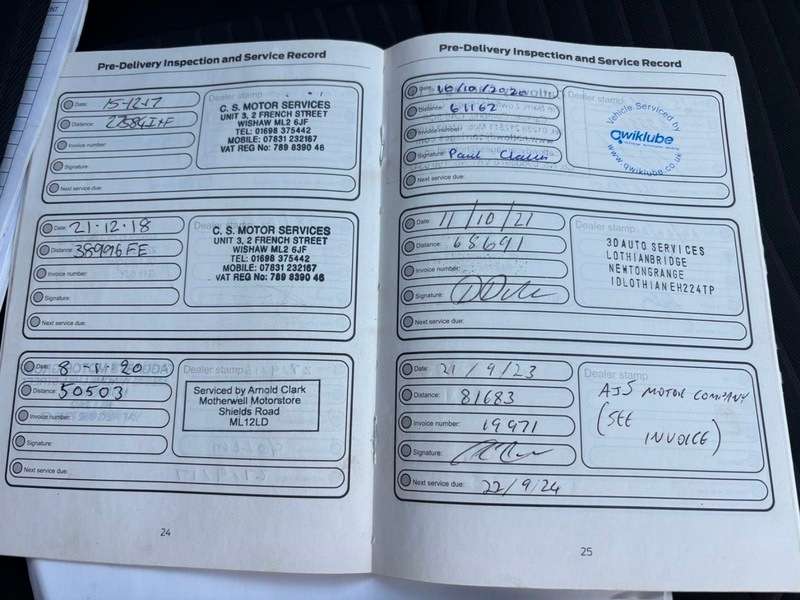 Pre-Delivery Inspection and Service Record
Date: 15-12-17
Distance:
Invoice number:
Signature:
Next service due:
Dealer stamp
C. S. MOTOR SERVICES
UNIT 3, 2 FRENCH STREET
WISHAW ML2 6JF
TEL: 01698 375442
MOBILE: 07831 232167
VAT REG No: 789 8390 46
Date: 21-12-18
Distance: 38996 FE
Invoice number:
Signature:
Next service due:
C. S. MOTOR SERVICES
UNIT 3, 2 FRENCH STREET
WISHAW ML2 6JF
TEL: 01698 375442
MOBILE: 07831 232167
VAT REG No: 789 8390 46
Date: 8-1-20
Distance: 50503
Invoice number:
Signature:
Next service due:
Dealer stamp
Serviced by Arnold Clark
Motherwell Motorstore
Shields Road
ML12LD
24
Pre-Delivery Inspection and Service Record
Date: 16/10/2020
Distance: 61162
Invoice number:
Signature: Paul
Next service due:
Dealer stamp
Vehicle Serviced by
Qwiklube
www.qwiklube.co.uk
Date: 11/10/21
Distance: 68691
Invoice number:
Signature:
Next service due:
Dealer stamp
3D AUTO SERVICES
LOTHIANBRIDGE
NEWTONGRANGE
IDLOTHIAN EH224TP
Date: 21/9/23
Distance: 81683
Invoice number: 19971
Signature:
Next service due: 22/9/24
Dealer stamp
AJS MOTOR COMPANY
(SEE
INVOICE)
25